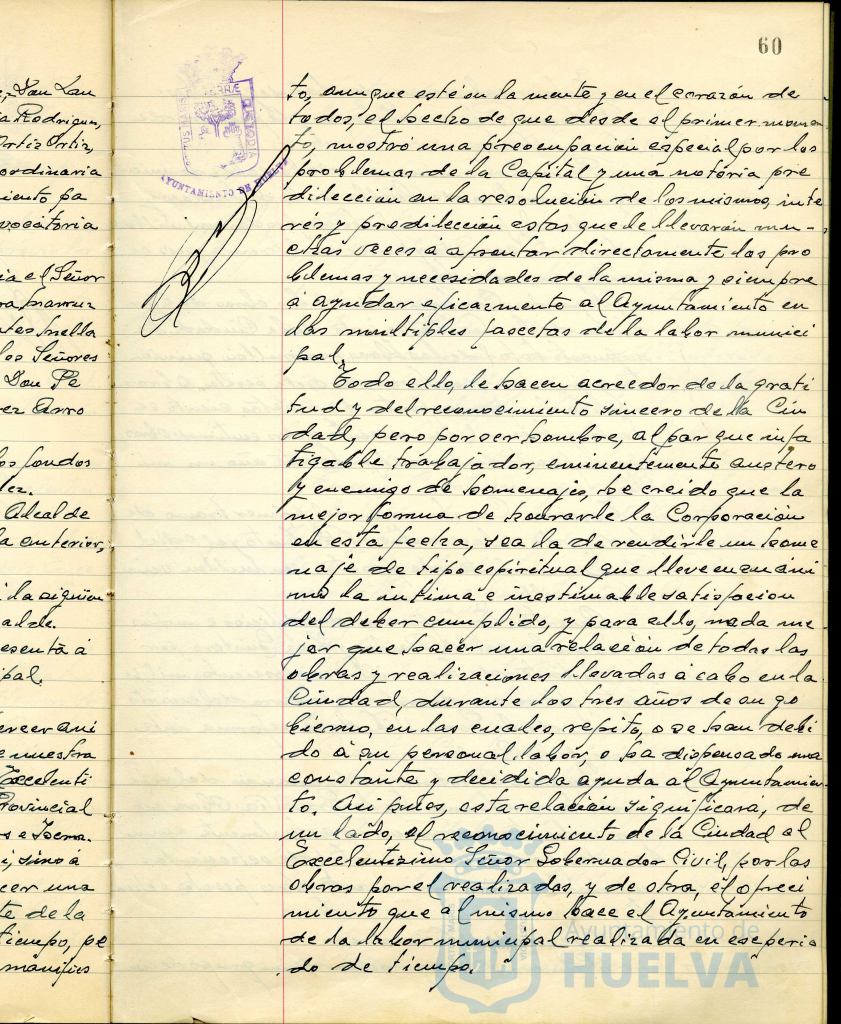 60
, Don Lau
a Rodriguez,
Ortiz Ortiz,
ordinaria
iento pa
vocatoria
ia el Señor
los Señores
Don Pe
ez Arro
os fondos
lez.
Alcalde
a anterior,
la siguien
alde.
esenta á
ipal.
ercer ani
e nuestra
Excelenti
Provincial
i, sino á
cer una
te de la
tiempo, pe
manifies
AYUNTAMIENTO DE HUELVA
to, aunque esté en la mente y en el corazón de
todos, el hecho de que desde el primer momen
to, mostró una preocupación especial por los
problemas de la Capital y una notoria pre
dilección en la resolución de los mismos, inte
rés y predilección estas que le llevarán mu-
chas veces á afrontar directamente los pro
blemas y necesidades de la misma y siempre
á ayudar eficazmente al Ayuntamiento en
las multiples fascetas de la labor munici
pal.
Todo ello, le hacen acreedor de la grati
tud y del reconocimiento sincero de la Ciu
dad, pero por ser hombre, al par que infa
tigable trabajador, eminentemente austero
y enemigo de homenajes, he creido que la
mejor forma de honrarle la Corporación
en esta fecha, sea la de rendirle un home
naje de tipo espiritual que lleve en su áni
mo la intima e inestimable satisfacion
del deber cumplido, y para ello, nada me
jor que hacer una relación de todas las
obras y realizaciones llevadas á cabo en la
Ciudad, durante los tres años de su go
bierno, en las cuales, repito, o se han debi
do á su personal labor, o ha dispensado una
constante y decidida ayuda al Ayuntamien-
to. Asi pues, esta relación significará, de
un lado, el reconocimiento de la Ciudad al
Excelentizimo Señor Gobernador Civil, por las
obras por el realizadas, y de otra, el ofreci
miento que al mismo hace el Ayuntamiento
de la labor municipal realizada en ese perio
do de tiempo.
Ayuntamiento de
HUELVA